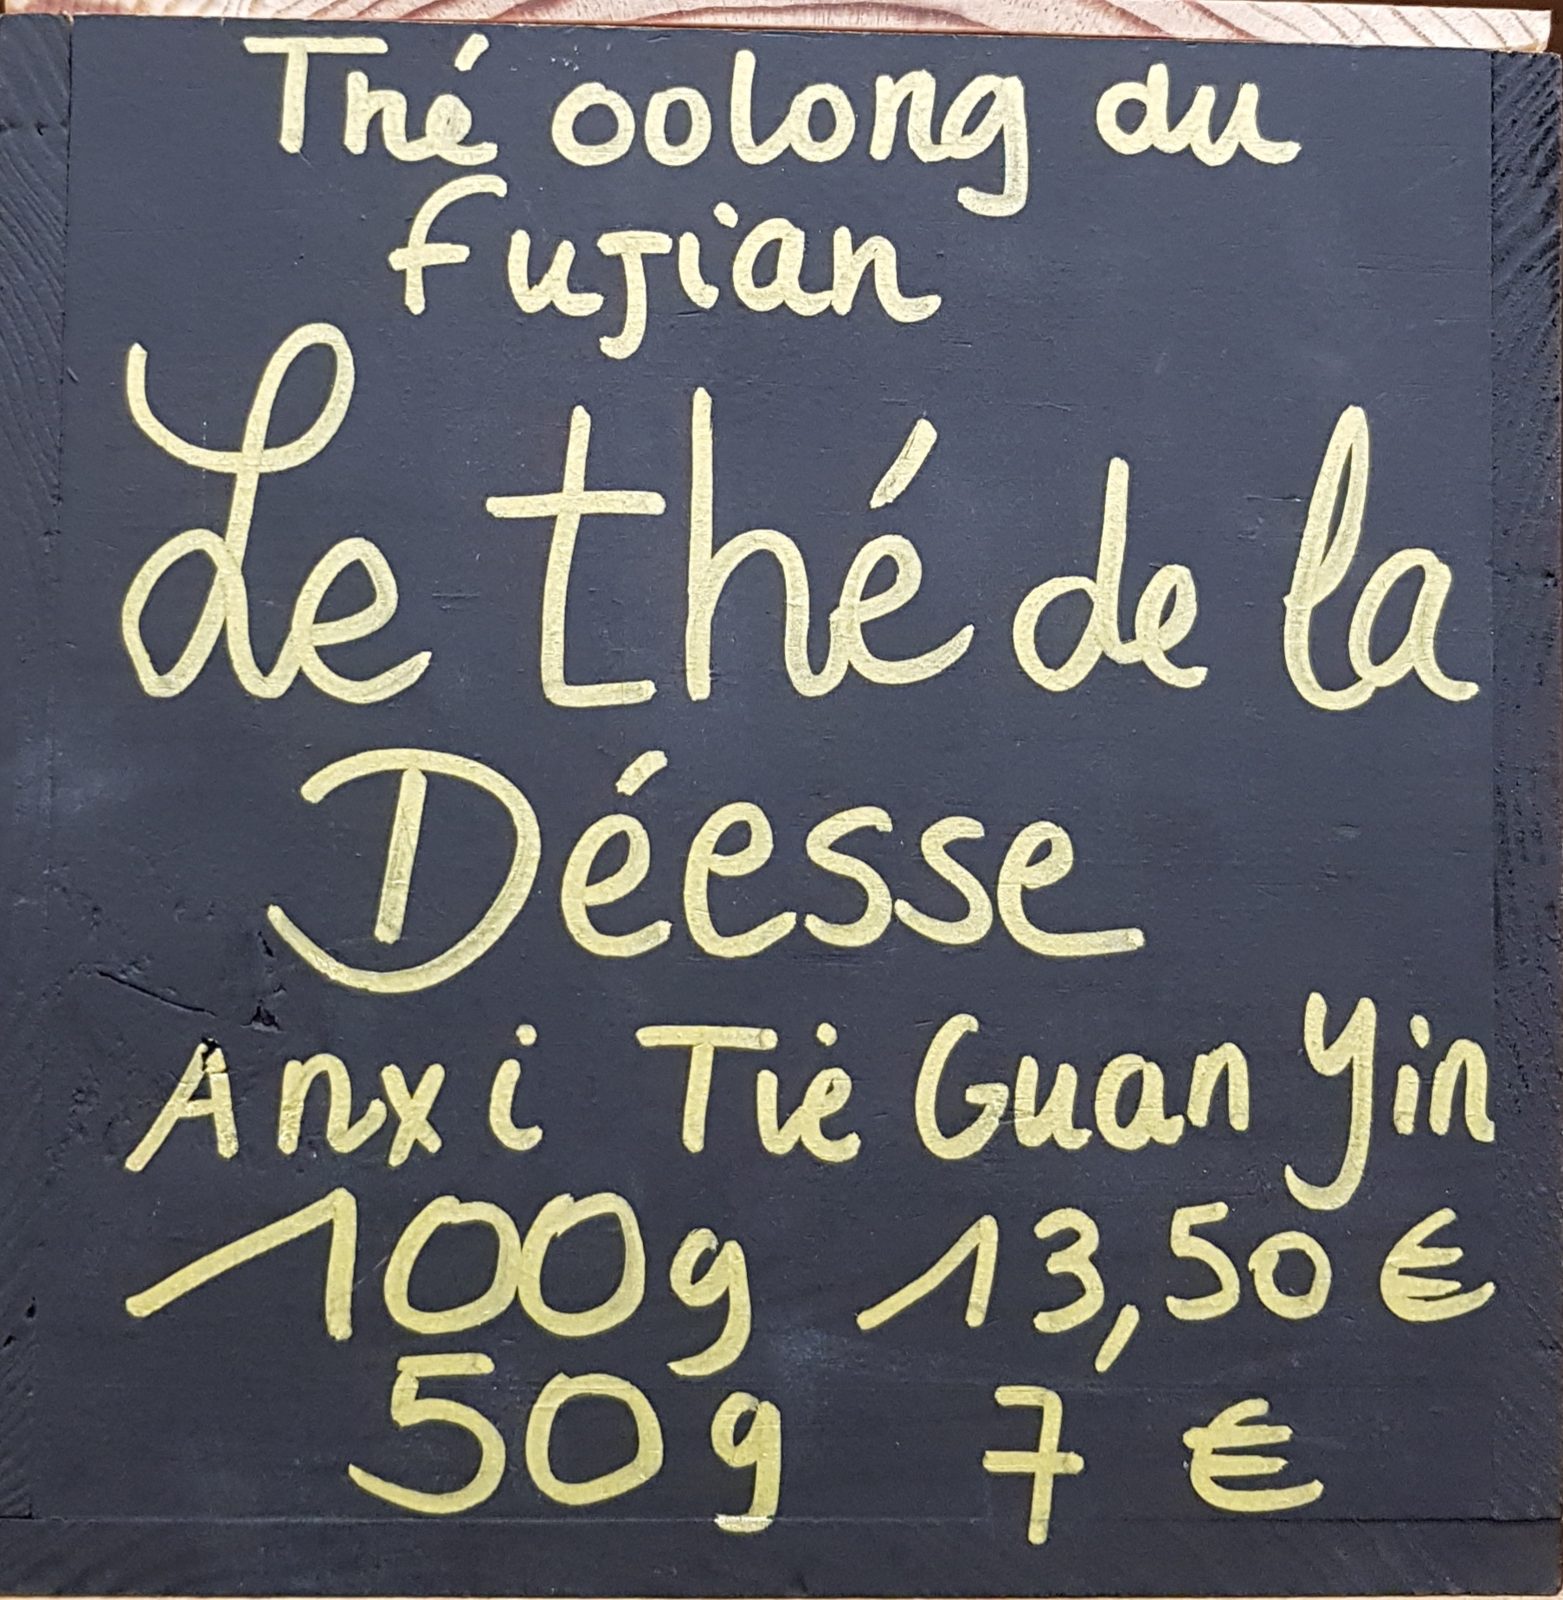 Thé oolong du
Fujian
Le thé de la
Déesse
Anxi Tiè Guan Yin
100g 13,50 €
50g 7 €